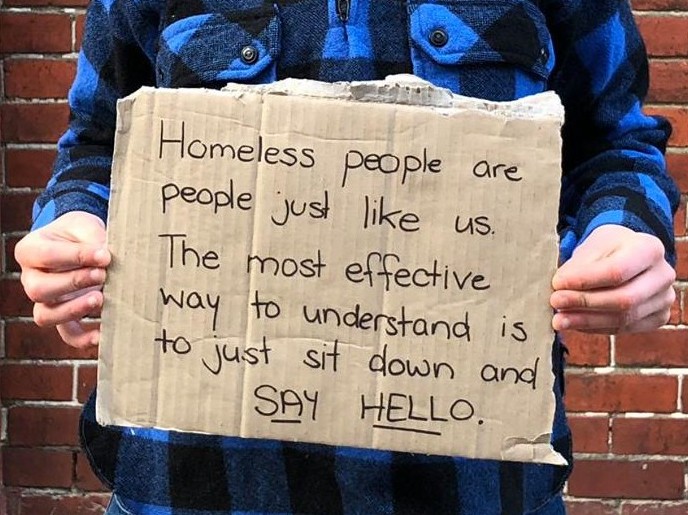 Homeless people are
people just like us.
The most effective
way to understand is
to just sit down and
SAY HELLO.